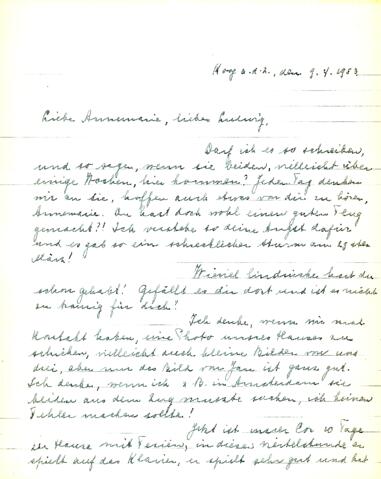 Koog a.d.Z., den 9.4.1953
Liebe Annemarie, lieber Ludwig,
Darf ich es so schreiben,
und so sagen, wenn sie beiden, vielleicht über
einige Wochen, hier kommen? Jeden Tag denken
wir an sie, hoffen auch etwas von dir zu hören,
Annemarie. Du hast doch wohl einen guten Flug
gemacht?! Ich verstehe so deine Angst dafür
und es gab so ein schrecklicher Sturm am 29 sten
März!
Wieviel Eindrücke hast du
schon gehabt! Gefällt es dir dort und ist es nicht
zu für dich?
Ich denke, wenn wir mal
Kontakt haben, eine Photo unsres Hauses zu
schicken, vielleicht auch kleine Bilder von uns
drei, aber nur das Bild von Jan ist ganz gut.
Ich denke, wenn ich z.B. in Amsterdam sie
beiden aus dem Zug musste suchen, ich keinen
Fehler machen sollte!
Jetzt ist unser Cor 10 Tage
zu Hause mit Ferien, in dieser Viertelstunde er
spielt auf das Klavier, er spielt sehr gut und hat